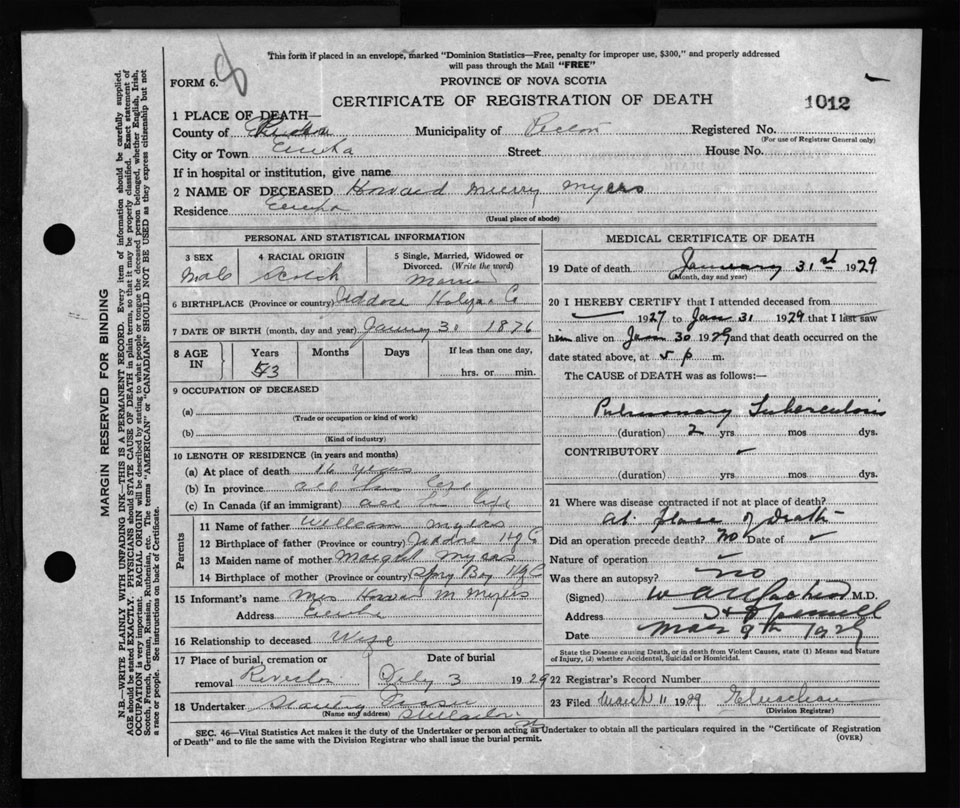 This form if placed in an envelope, marked "Dominion Statistics—Free, penalty for improper use, $300," and properly addressed
will pass through the Mail "FREE"
FORM 6.
PROVINCE OF NOVA SCOTIA
CERTIFICATE OF REGISTRATION OF DEATH
1012
1 PLACE OF DEATH—
County of Municipality of Pictou Registered No.
(For use of Registrar General only)
City or Town Eureka Street House No.
If in hospital or institution, give name
2 NAME OF DECEASED Howard Murry Myers
Residence Eureka
(Usual place of abode)
PERSONAL AND STATISTICAL INFORMATION
3 SEX 4 RACIAL ORIGIN 5 Single, Married, Widowed or
Divorced. (Write the word)
Male Scotch
6 BIRTHPLACE (Province or country) Jeddore Co
7 DATE OF BIRTH (month, day and year) January 31 1876
8 AGE IN Years Months Days If less than one day,
53 hrs. or min.
9 OCCUPATION OF DECEASED
(a)
(Trade or occupation or kind of work)
(b)
(Kind of industry)
10 LENGTH OF RESIDENCE (in years and months)
(a) At place of death 16 years
(b) In province all life
(c) In Canada (if an immigrant) all life
Parents
11 Name of father William Myers
12 Birthplace of father (Province or country) Jeddore
13 Maiden name of mother Myers
14 Birthplace of mother (Province or country) Spry Bay
15 Informant's name Mrs Howard M Myers
Address Eureka
16 Relationship to deceased Wife
17 Place of burial, cremation or Date of burial
removal Riverton Feby 3 1929
18 Undertaker
(Name and address)
MEDICAL CERTIFICATE OF DEATH
19 Date of death January 31st 1929
(Month, day and year)
20 I HEREBY CERTIFY that I attended deceased from
1927 to Jan 31 1929 that I last saw
him alive on Jan 30 1929 and that death occurred on the
date stated above, at 5 p m.
The CAUSE of DEATH was as follows:—
Pulmonary Tuberculosis
(duration) 2 yrs mos dys.
CONTRIBUTORY
(duration) yrs mos dys.
21 Where was disease contracted if not at place of death?
at place of Death
Did an operation precede death? No Date of
Nature of operation
Was there an autopsy? no
(Signed) M.D.
Address
Date Mar 9th 1929
State the Disease causing Death, or in death from Violent Causes, state (1) Means and Nature
of Injury, (2) whether Accidental, Suicidal or Homicidal.
22 Registrar's Record Number
23 Filed March 11 1929
(Division Registrar)
SEC. 46—Vital Statistics Act makes it the duty of the Undertaker or person acting as Undertaker to obtain all the particulars required in the "Certificate of Registration
of Death" and to file the same with the Division Registrar who shall issue the burial permit.
(OVER)
MARGIN RESERVED FOR BINDING
N.B.—WRITE PLAINLY WITH UNFADING INK—THIS IS A PERMANENT RECORD. Every item of information should be carefully supplied.
AGE should be stated EXACTLY. PHYSICIANS should STATE CAUSE OF DEATH in plain terms, so that it may be properly classified. Exact statement of
OCCUPATION is very important. RACIAL ORIGIN will be described by stating to what people or tongue the deceased person belonged, whether English, Irish,
Scotch, French, German, Russian, Ruthenian, etc. The terms "AMERICAN" or "CANADIAN" SHOULD NOT BE USED as they express citizenship but not
a race or people. See instructions on back of Certificate.